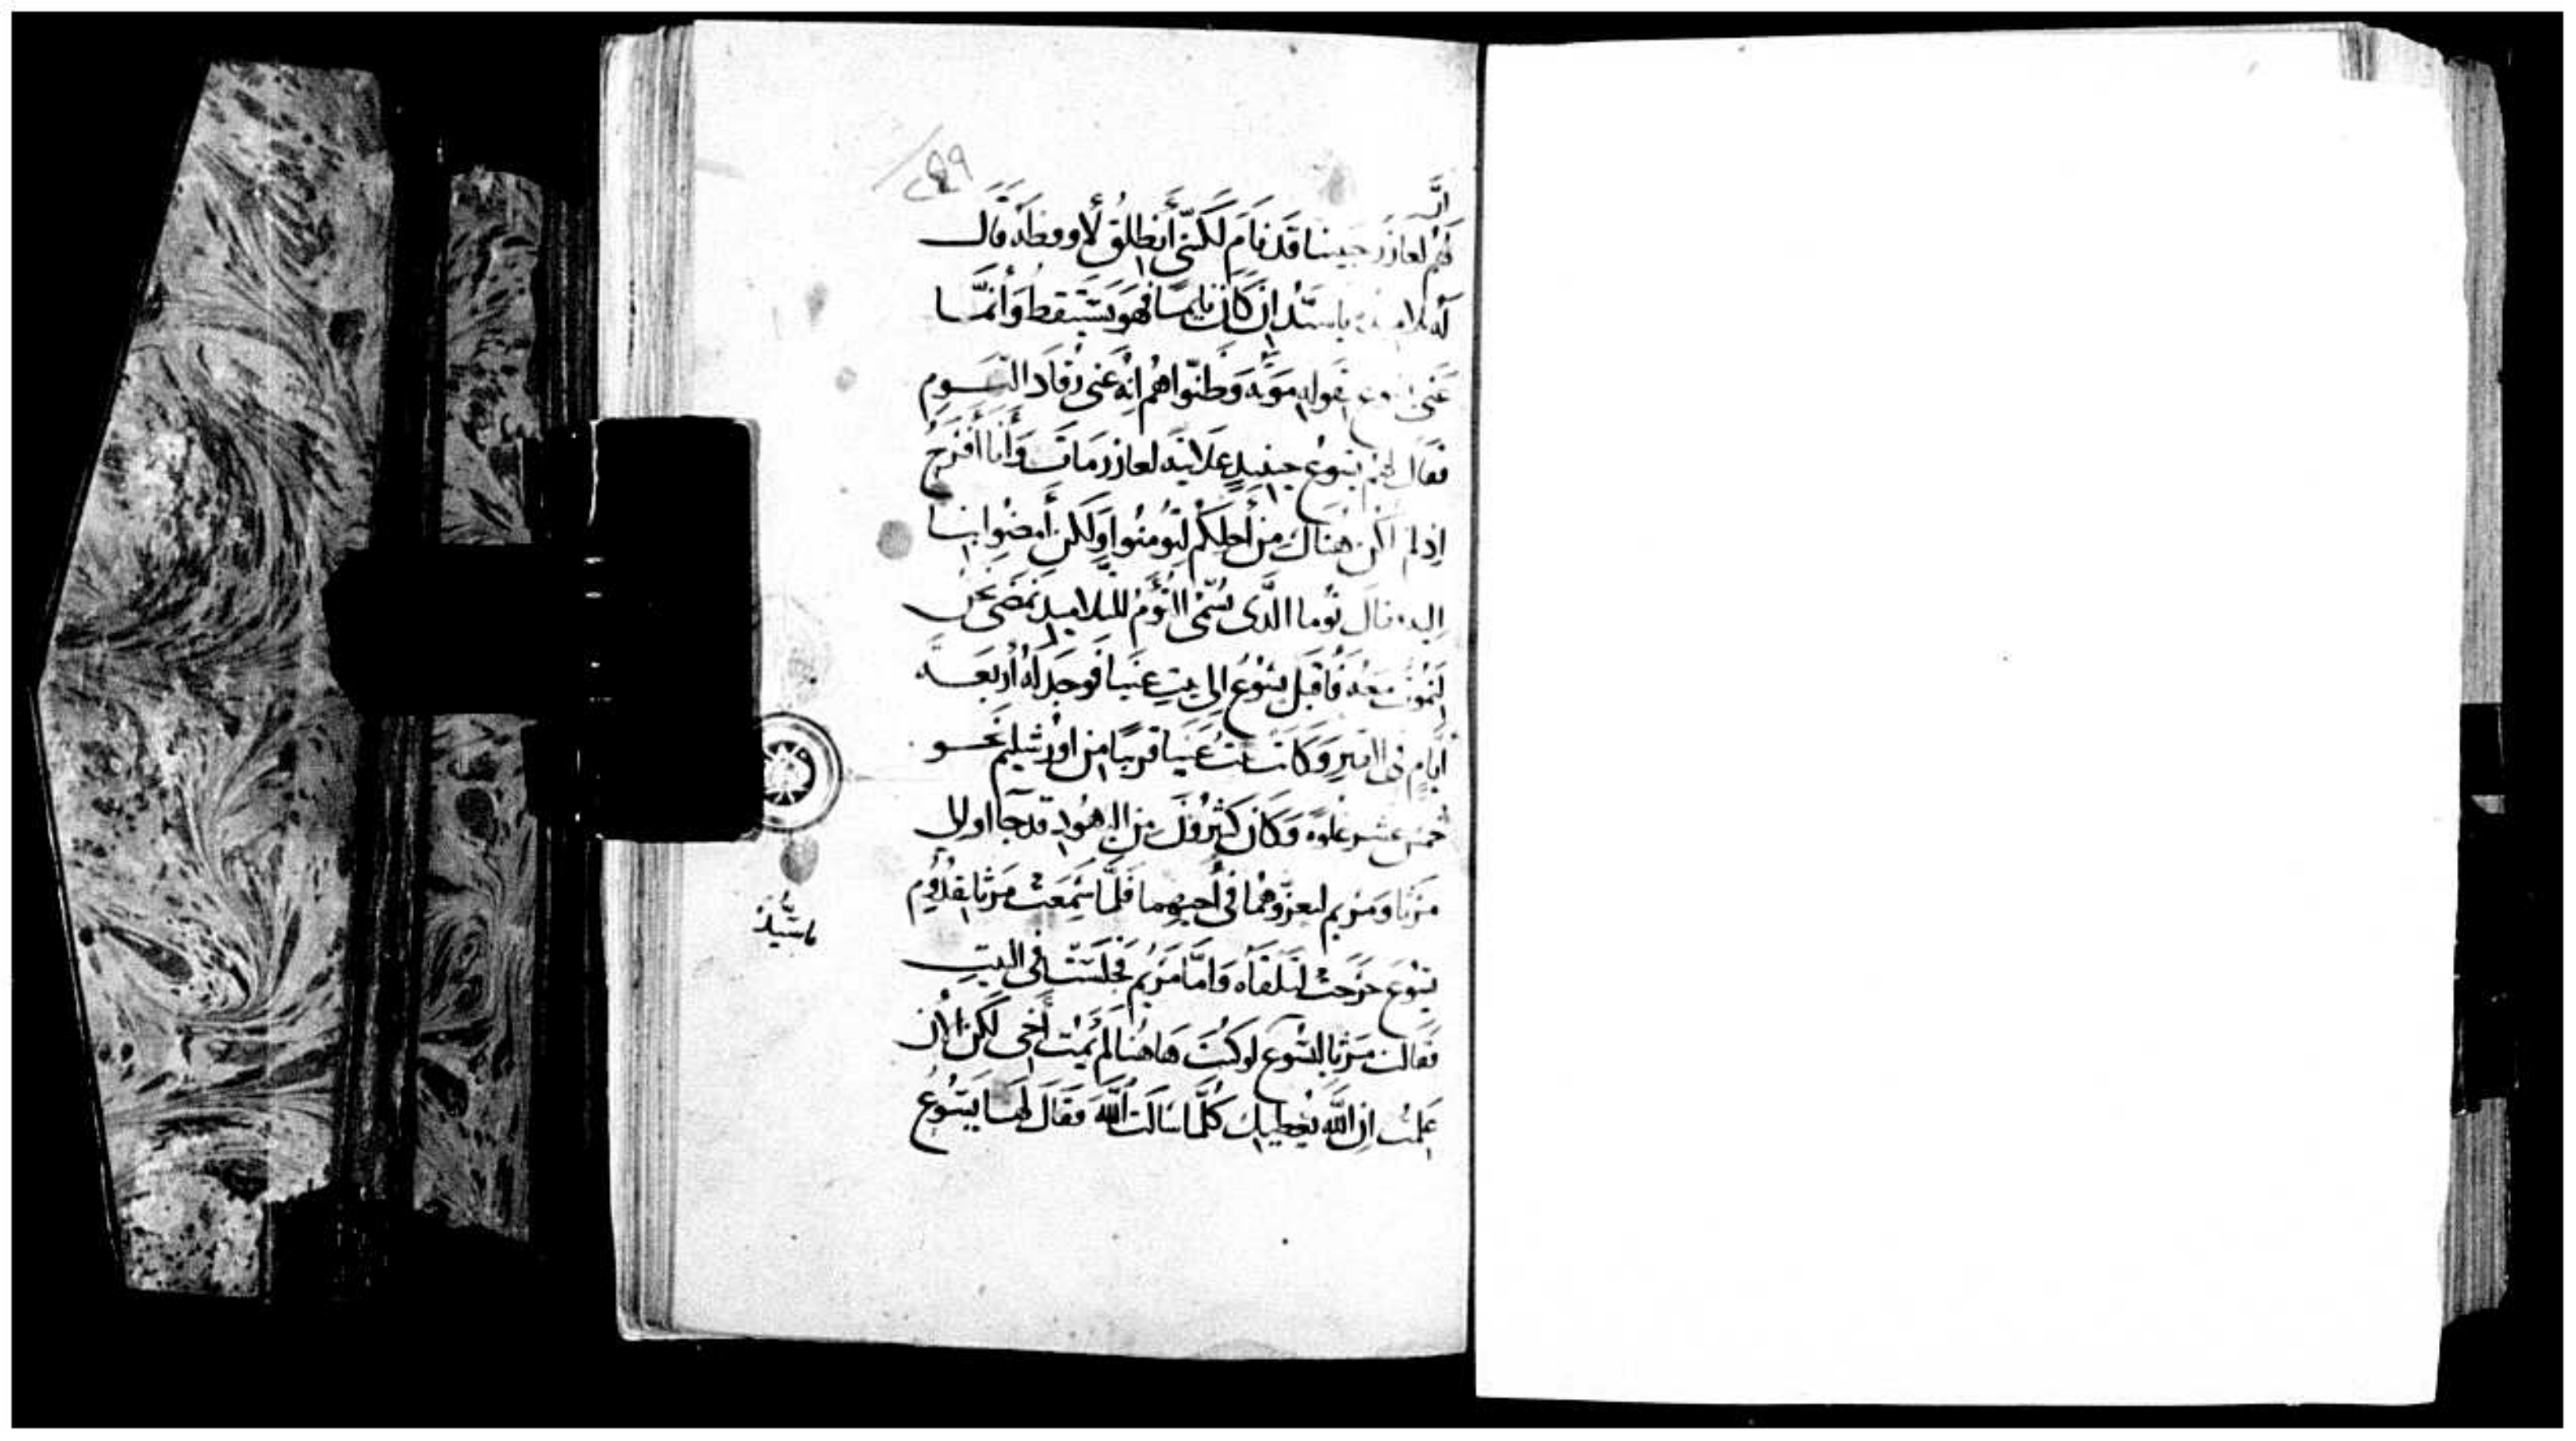 انّ
لهم لعازر حبيبنا قد نام لكنّى أنطلق لأوقظه قال
له تلاميذه ياسيّد ان كان نايما فهو يستيقظ وانما
عنى يسوع بقوله موته وظنّوا هم انه عنى رقاد النوم
فقال لهم يسوع حينيذ علانيه لعازر مات وأنا أفرح
إذ لم اكن هناك من أجلكم لتومنوا ولكن أمضوا بنا
اليه قال توما الذى يسمّى التوم للتلاميذ نمضى نحن
لنموت معه فاقبل يسوع الى بيت عنيا فوجد له أربعه
أيام فى القبر وكانت بيت عنيا قريبا من اورشليم نحو
خمس عشر غلوه وكان كثيرون من اليهود قد جاا وا الى
مرثا ومريم ليعزوهما فى أخيهما فلمّا سمعت مرثا بقدوم
يسوع خرجت لتلقاه وامّا مريم فجلست فى البيت
فقالت مرثا ليسوع لو كنت هاهنا لم يمت أخى لكن الان
علمت ان الله يعطيك كلّما سالت الله فقال لها يسوع
ياسيّد